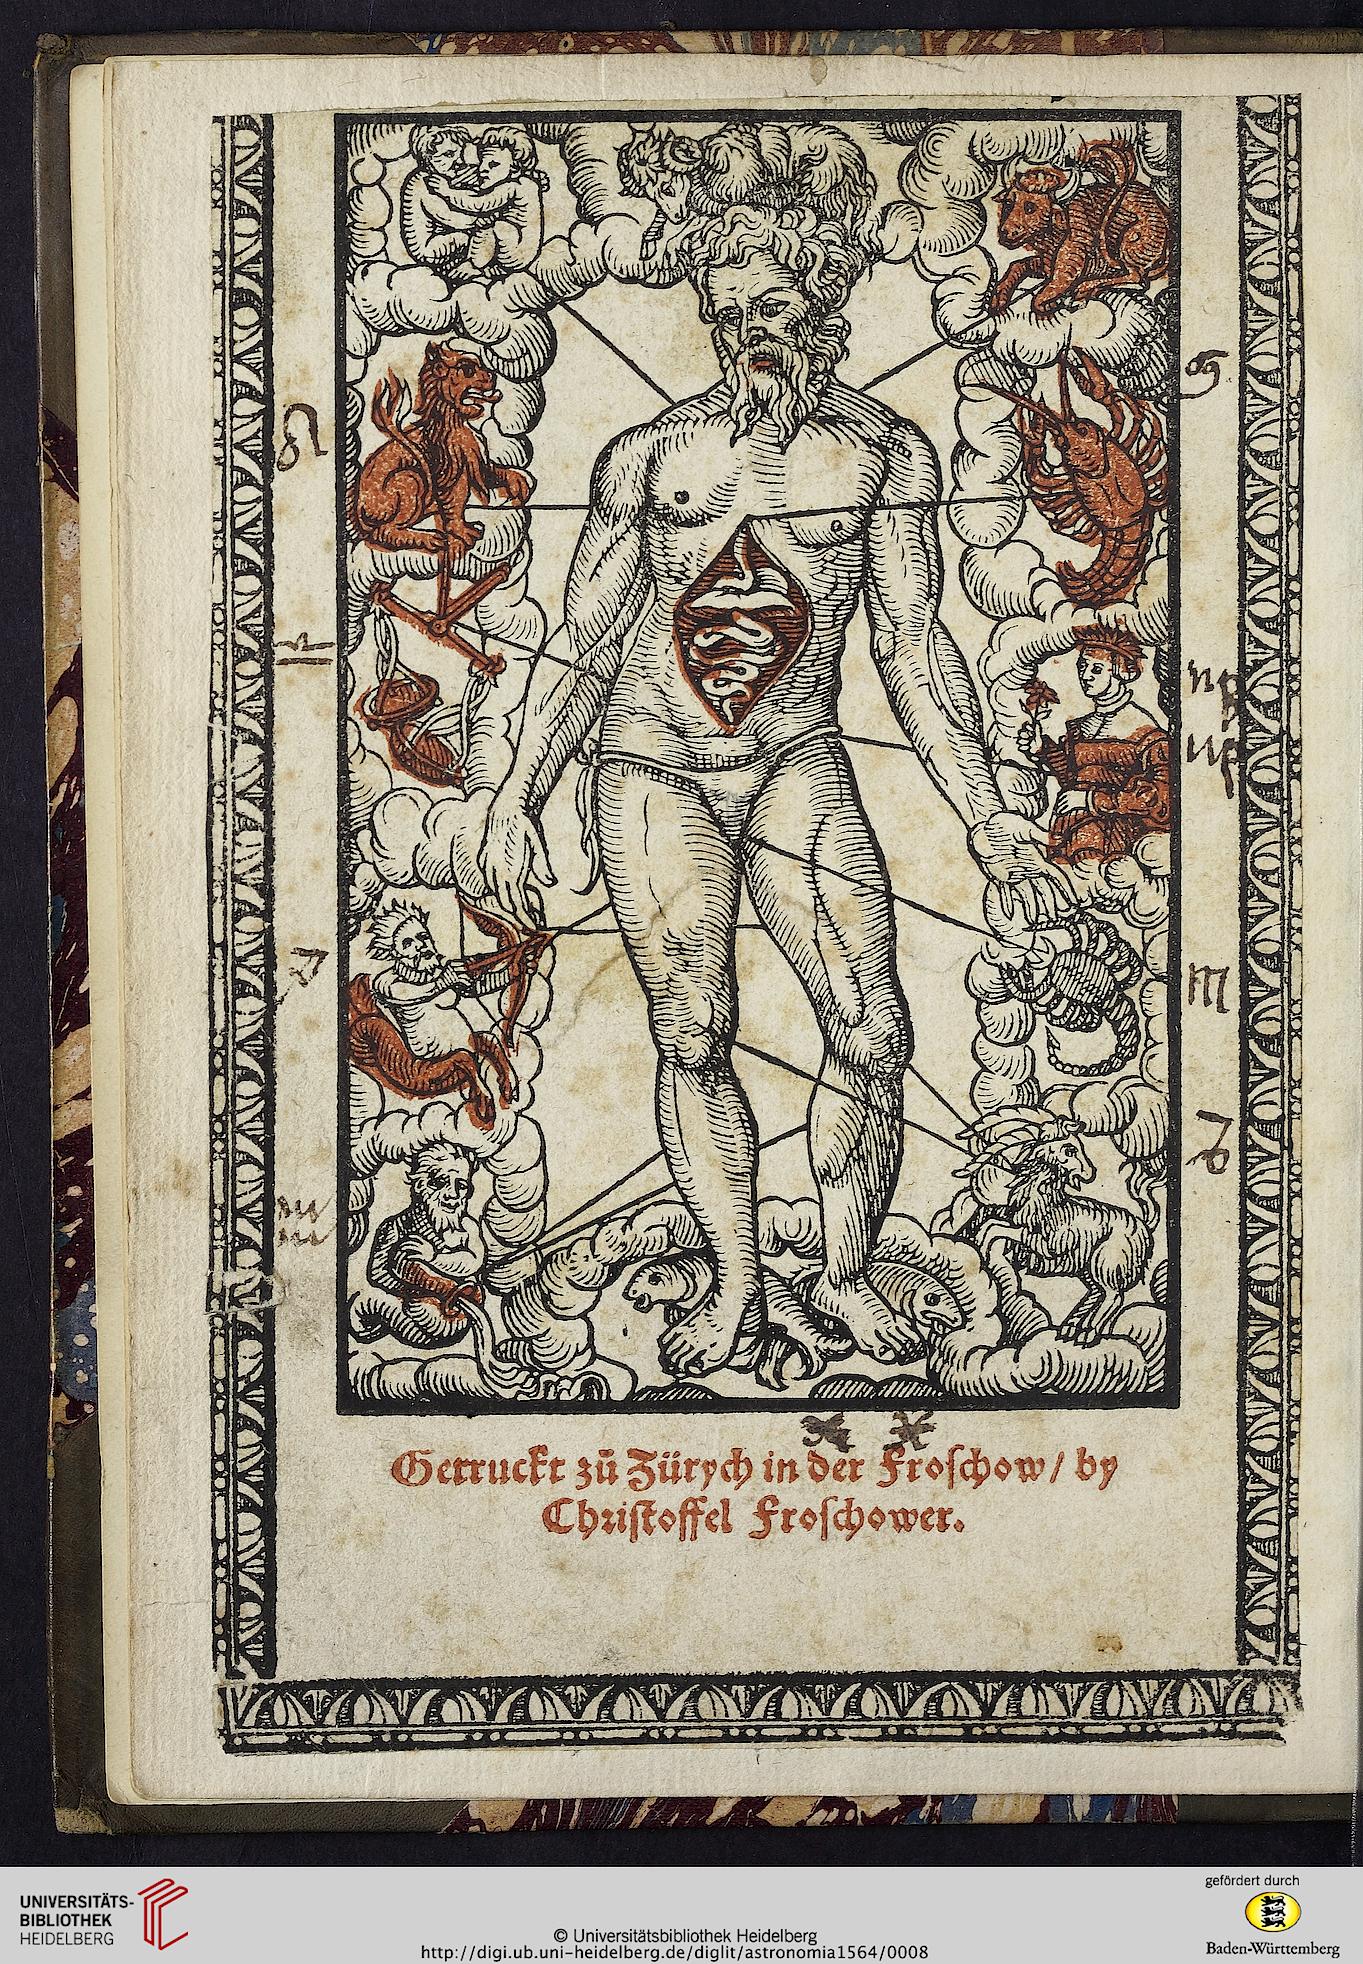 ♌
♋
♎
♍
♍
♏
♑
♒
Getruckt zů Zürych in der Froschow / by
Christoffel Froschower.
UNIVERSITÄTS-
BIBLIOTHEK
HEIDELBERG
© Universitätsbibliothek Heidelberg
http://digi.ub.uni-heidelberg.de/diglit/astronomia1564/0008
gefördert durch
Baden-Württemberg